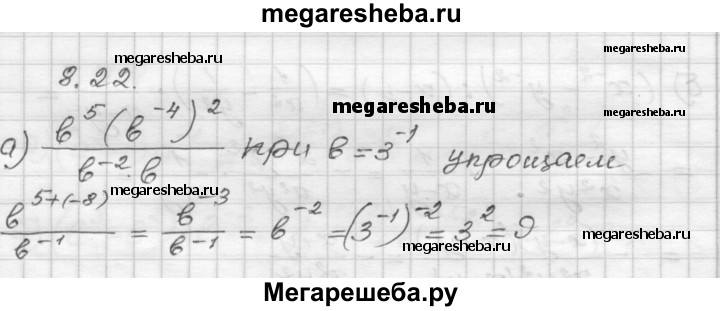 megaresheba.ru
8.22.
megaresheba.ru
megaresheba.ru
megaresheba.ru
а) (в^5(в^-4)^2)/(в^-2·в) при в=3^-1 упрощаем
megaresheba.ru
в^(5+(-8))/в^-1 = в^-3/в^-1 = в^-2 = (3^-1)^-2 = 3^2 = 9
megaresheba.ru
megaresheba.ru
Мегарешеба.ру